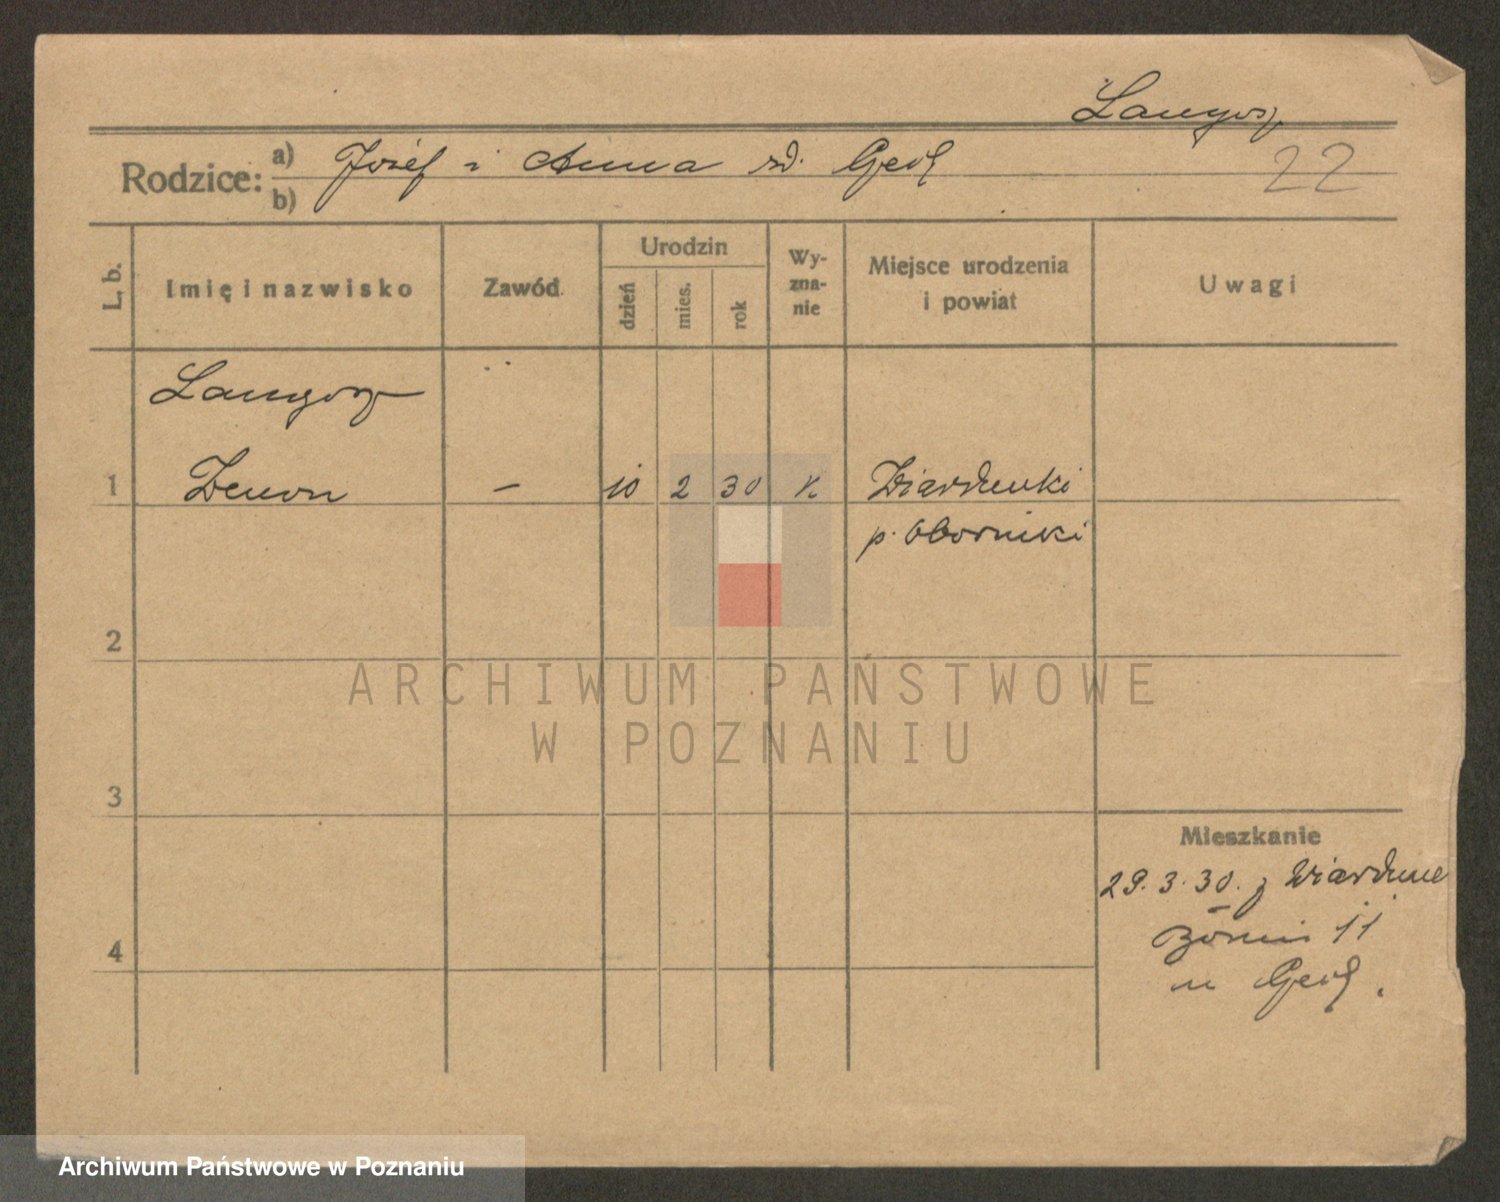 Langosz
Rodzice: a) Józef i Anna zd. Gerl
b)
22
L. b.
Imię i nazwisko
Zawód
Urodzin
dzień
mies.
rok
Wy-
zna-
nie
Miejsce urodzenia
i powiat
Uwagi
Langosz
1 Zenon - 10 2 30 K Wiardunki
p. Oborniki
2
3
4
Mieszkanie
29.3.30. z
11
u Gerl.
ARCHIWUM PAŃSTWOWE
W POZNANIU
Archiwum Państwowe w Poznaniu